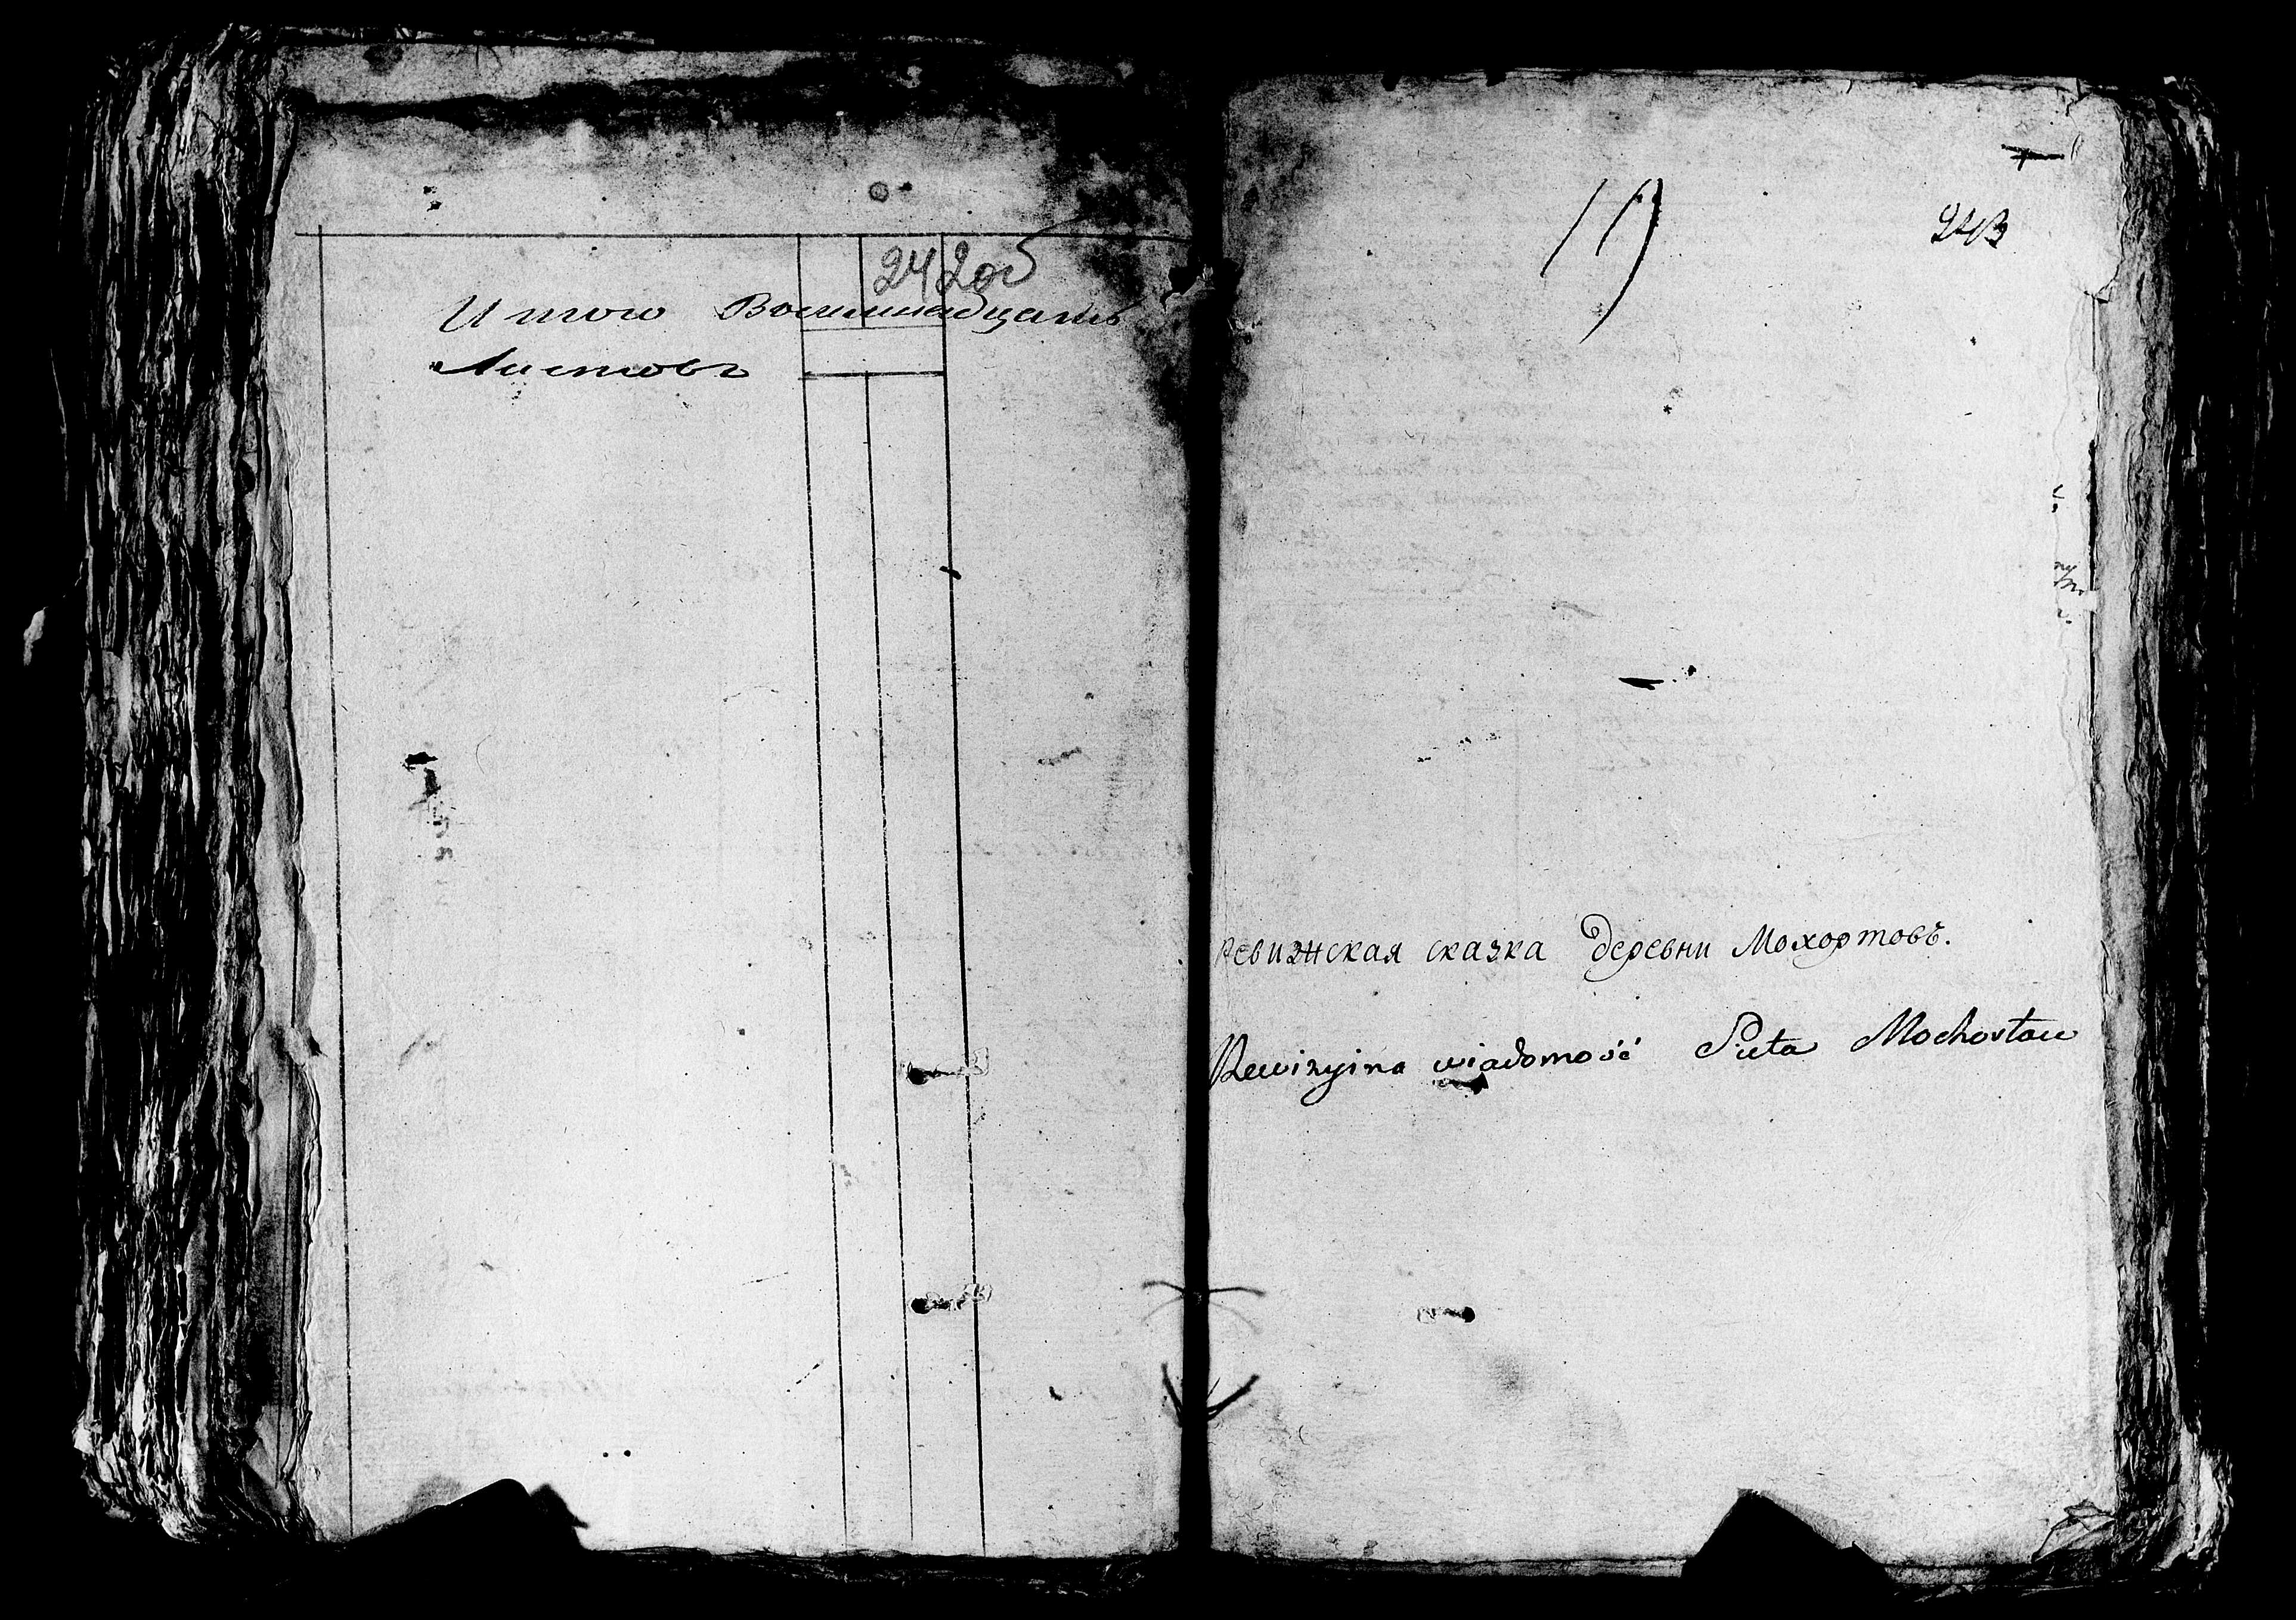 242об
Итого Восимнадцать
Листовъ
17
243
Ревизская сказка деревни Мохортовъ.
Rewizyina wiadomość Sieła Mochortow